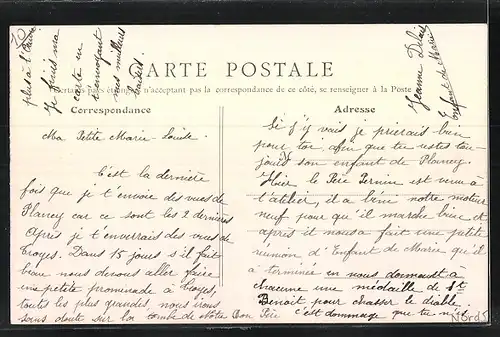 CARTE POSTALE
Certains pays étrangers n'acceptant pas la correspondance de ce côté, se renseigner à la Poste
Correspondance
Ma Petite Marie-Louise.
C'est la dernière
fois que je t'envoie des vues de
Plancy car ce sont les 2 dernières
Après je t'enverrais des vues de
Troyes. Dans 15 jours s'il fait
beau nous devons aller faire
une petite promenade à Troyes,
toutes les plus grandes, nous irons
sans doute sur la tombe de Notre Bon Père
Adresse
Si j'y vais je prierais bien
pour toi, afin que tu restes tou-
jours son enfant de Plancy.
Hier le Père est venu à
l'atelier, il a béni notre moteur
neuf pour qu'il marche bien et
après il nous a fait une petite
réunion d'Enfant de Marie qu'il
a terminée en nous donnant à
chacune une médaille de St
Benoit pour chasser le diable.
c'est dommage que tu n'es
plus à l'
Je finis ma
carte en
t'envoyant
mes meilleurs
baisers.
Jeanne
Enfant de Marie